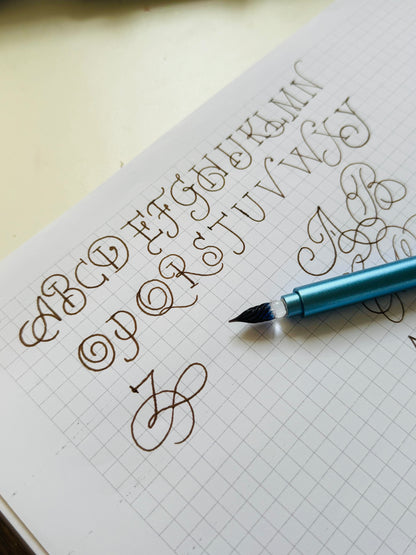 ABCDEFGHIJKLMN
OPQRSTUVWXY
Z
AB